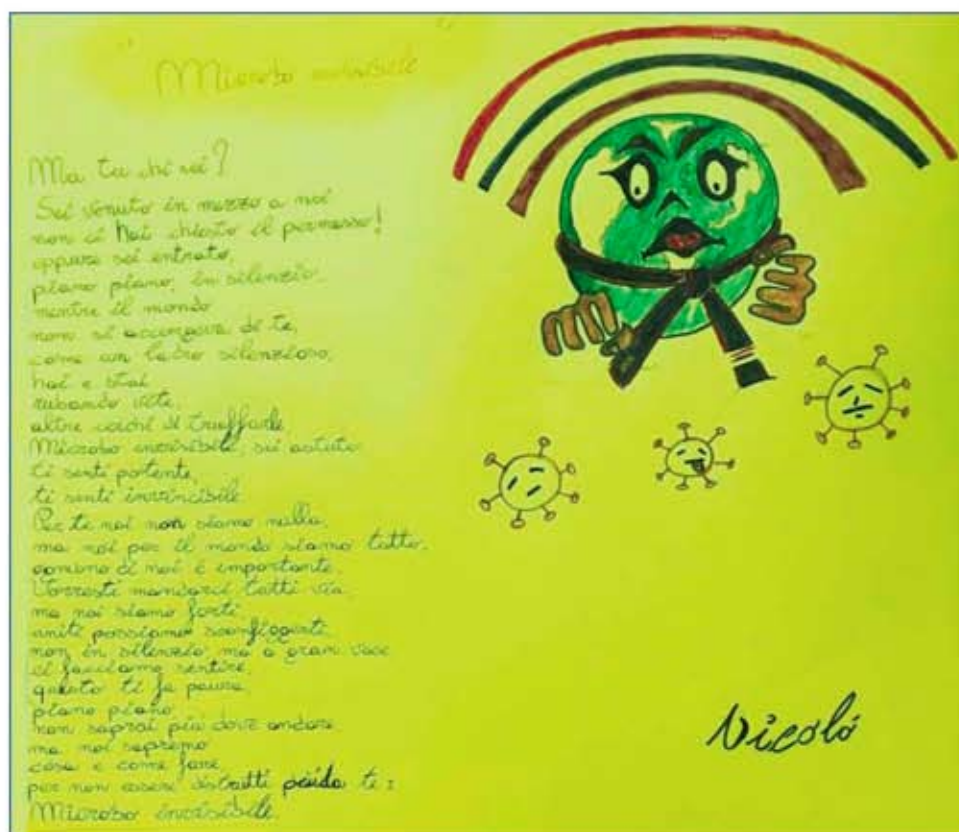 " Microbo invisibile "
Ma tu chi sei?
Sei venuto in mezzo a noi
non ci hai chiesto il permesso!
eppure sei entrato,
piano piano, in silenzio
mentre il mondo
non si accorgeva di te,
come un ladro silenzioso,
hai e stai
rubando vite,
altre cerchi di truffarle
Microbo invisibile, sei astuto
ti senti potente,
ti senti invincibile
Per te noi non siamo nulla,
ma noi per il mondo siamo tutto,
ognuno di noi è importante.
Vorresti mandarci tutti via,
ma noi siamo forti,
uniti possiamo sconfiggerti,
non in silenzio ma a gran voce
ci facciamo sentire,
questo ti fa paura,
piano piano
non saprai più dove andare
ma noi sapremo
cosa e come fare
per non essere distrutti da te:
Microbo invisibile.
Nicoló